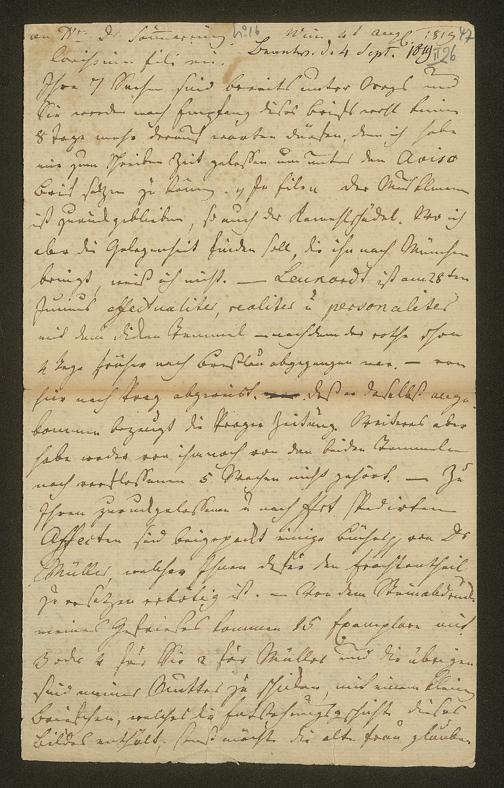 an Dr. de Sömmerring N° 16 Wien 4t Aug 1819 47
carissime fili mi. Beantw. d. 4 Sept. 1819 II 26
Ihre 7 Sachen sind bereits unter Wegs und
Sie werden nach Empfang dieses Briefs wohl keine
8 Tage mehr darauf warten dürfen, denn ich habe
mir zum Schreiben Zeit gelassen um unter den Aviso
Brief setzen zu können. In Eilen der Muskelmann
ist zurückgeblieben, so auch der Schädel. Wo ich
aber die Gelegenheit finden soll, die ihn nach München
bringt, weiß ich nicht. — Leukardt ist am 28ten
Junius effectualiter, realiter u personaliter
mit dem dicken Tremmel — nachdem der rothe schon
4 Tage früher nach Breslau abgegangen war. — von
hier nach Prag abgereist. — daß er daselbst ange-
kommen bezeugt die Prager Zeitung. Weiteres aber
habe weder von ihm noch von den beiden Tremmeln
nach verflossenen 5 Wochen nicht gehört. — Zu
Ihren zurückgelassenen u nach spedirten
Effecten sind beigepackt einige Bücher von Dr
Müller, welcher Ihnen dafür den Frachtantheil
zu ersetzen erbötig ist. — Von dem Steinabdruck
meines Gefrieses kommen 15 Exemplare mit
3 oder 4 für Sie 2 für Müller und die übrigen
sind meiner Mutter zu schicken, mit einem kleinen
Briefchen, welches die Entstehungsgeschichte dieses
Bildes enthält. sonst möchte die alte Frau glauben